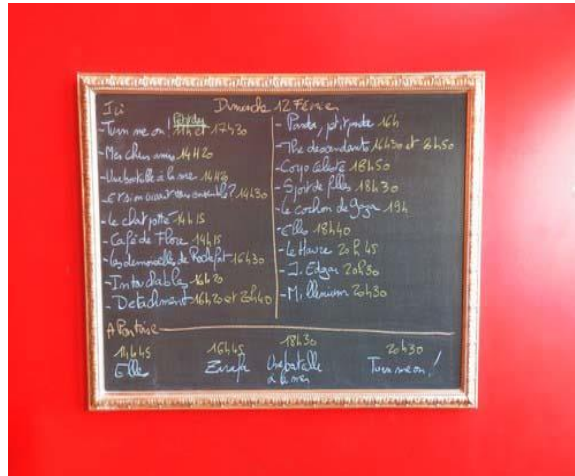 Ici Dimanche 12 Février
- Turn me on! 14h et 17h30
- Mes chers amis 14h20
- Une bouteille à la mer 14h20
- Et si on vivait tous ensemble? 14h30
- Le chat potté 14h15
- Café de Flore 14h15
- Les demoiselles de Rochefort 16h30
- Intouchables 16h20
- Detachment 16h20 et 20h40
- Panda, petit panda 16h
- The descendants 16h30 et 20h50
- Corpo celeste 18h50
- Sport de filles 18h30
- Le cochon de Gaza 19h
- Elles 18h40
- Le Havre 20h45
- J. Edgar 20h30
- Millenium 20h30
A Pontoise
14h45 16h45 18h30 20h30
Elles Zarafa Une bouteille à la mer Turn me on!